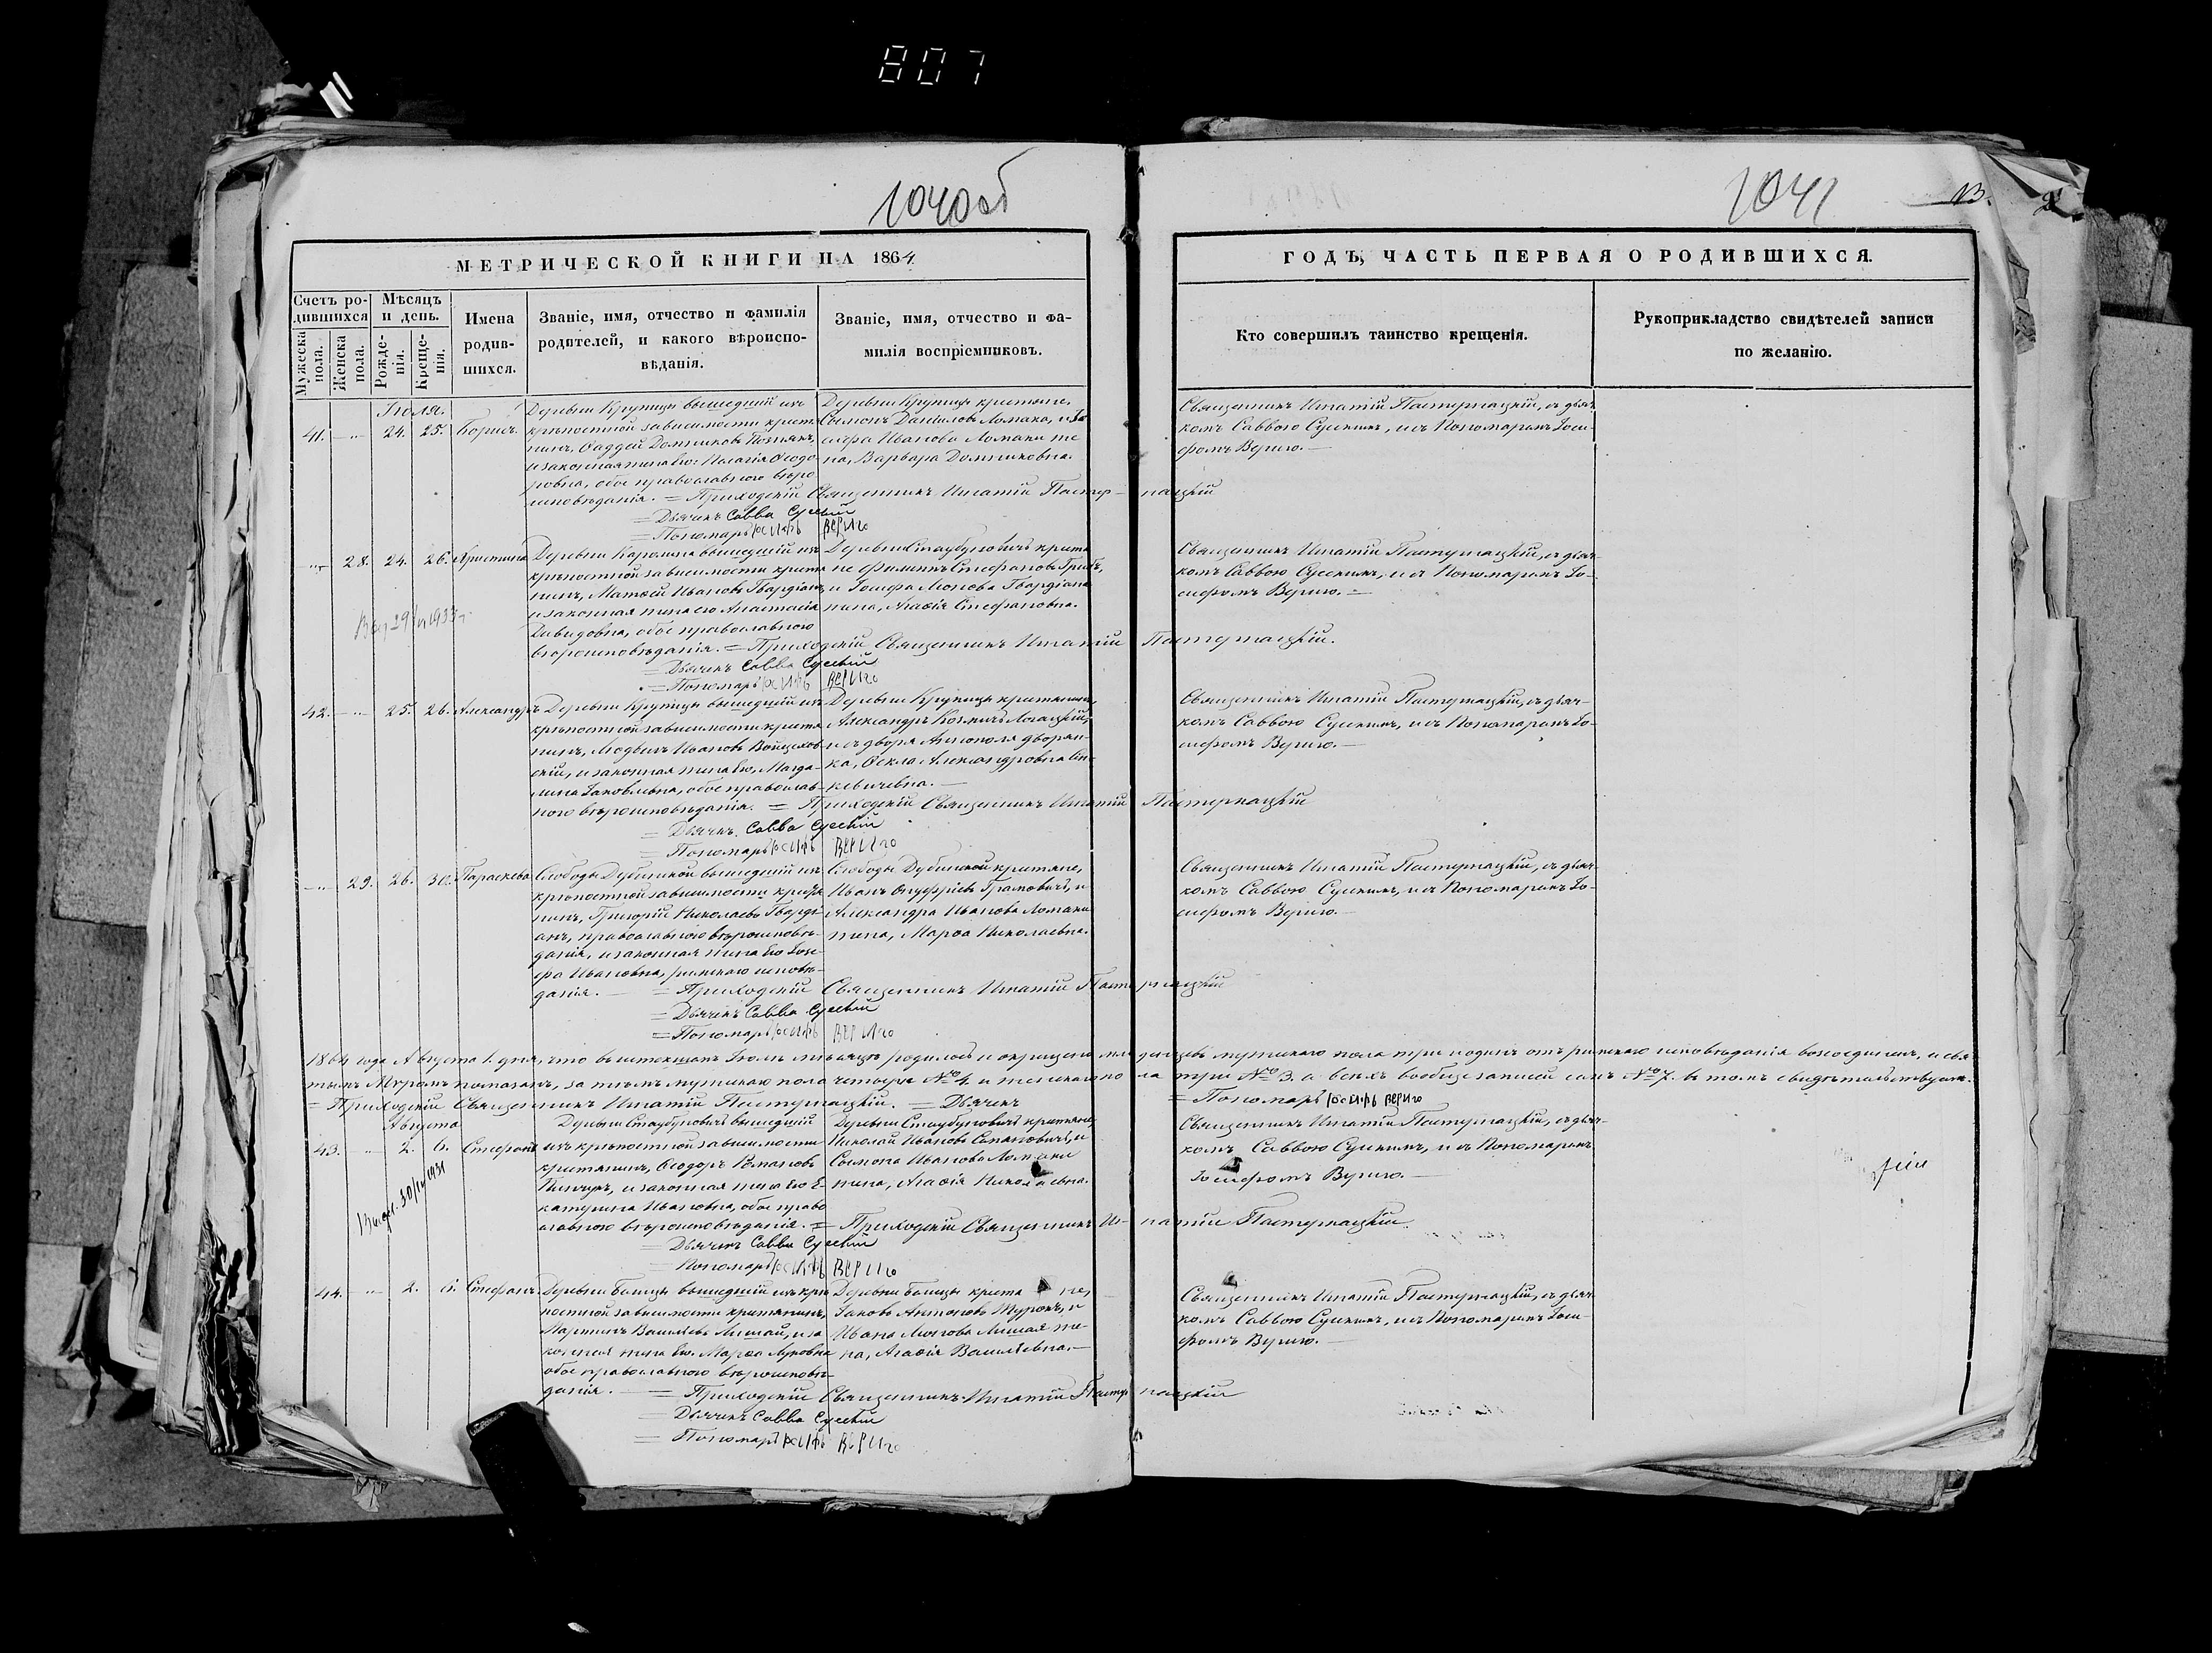 807
1040об
1041
13.
МЕТРИЧЕСКОЙ КНИГИ НА 1864
ГОДЪ, ЧАСТЬ ПЕРВАЯ О РОДИВШИХСЯ.
Счетъ родившихся
Мужеска пола.
Женска пола.
Мѣсяцъ и день.
Рожденія.
Крещенія.
Имена родившихся.
Званіе, имя, отчество и фамилія
родителей, и какого вѣроиспо-
вѣданія.
Званіе, имя, отчество и фа-
милія воспріемниковъ.
Кто совершилъ таинство крещенія.
Рукоприкладство свидѣтелей записи
по желанію.
Іюля.
41. — „ 24. 25. Борисъ.
Деревни Крупицы вышедшій изъ
крѣпостной зависимости крестья-
нинъ, Фаддей Доминиковъ
и законная жена его Пелагія Ѳеодо-
ровна, обое православнаго вѣро-
исповѣданія. = Приходскій Священникъ Игнатій Пастернацкій
= Дьячекъ Савва Сускій
= Пономарь Іосифъ Вериго
Деревни Крупицы крестьяне,
Сымонъ Даніиловъ Ломако, и
Иванова Ломаки же-
на, Варвара Доминиковна.
Священникъ Игнатій Пастернацкій, съ дьяч-
комъ Саввою Сускимъ, и съ Пономаремъ Іоси-
фомъ Вериго. —
„ 28. 24. 26. Христина
Деревни вышедшій изъ
крѣпостной зависимости крестья-
нинъ, Матѳей Ивановъ Гвардіанъ,
и законная жена его Анастасія
Давидовна, обое православнаго
вѣроисповѣданія. = Приходскій Священникъ Игнатій Пастернацкій.
= Дьячекъ Савва Сускій
= Пономарь Іосифъ Вериго
Деревни Стаубуновичъ крестья-
не Филиппъ Стефановъ Грибъ,
и Іосифа Гвардіана
жена, Агаѳія Стефановна.
Священникъ Игнатій Пастернацкій, съ дьяч-
комъ Саввою Сускимъ, и съ Пономаремъ Іо-
сифомъ Вериго. —
42. — „ 25. 26. Александръ
Деревни Крупицы вышедшій изъ
крѣпостной зависимости крестья-
нинъ, Ивановъ Войцехов-
скій, и законная жена его, Магда-
лина Іаковлевна, обое православ-
наго вѣроисповѣданія. = Приходскій Священникъ Игнатій Пастернацкій
= Дьячекъ Савва Сускій
= Пономарь Іосифъ Вериго
Деревни Крупицы крестьянинъ,
Александръ
и съ двора дворян-
ка, Ѳекла Александровна
Священникъ Игнатій Пастернацкій, съ дьяч-
комъ Саввою Сускимъ, и съ Пономаремъ Іо-
сифомъ Вериго. —
— „ 29. 26. 30. Параскева
Слободы Дубицкой вышедшій изъ
крѣпостной зависимости крестья-
нинъ, Григорій Николаевъ Гварді-
анъ, православнаго вѣроисповѣ-
данія, и законная жена его Іози-
фа Ивановна, римскаго исповѣ-
данія. — = Приходскій Священникъ Игнатій Пастернацкій
= Дьячекъ Савва Сускій
= Пономарь Іосифъ Вериго
Слободы Дубицкой крестьяне,
Иванъ Онуфріевъ Грамовичъ, и
Александра Иванова Ломаки
жена, Марѳа Николаевна.
Священникъ Игнатій Пастернацкій, съ дьяч-
комъ Саввою Сускимъ, и съ Пономаремъ Іо-
сифомъ Вериго. —
1864 года Августа 1. дня, что въ истекшемъ Іюлѣ мѣсяцѣ родилось и окрещено младенцевъ мужескаго пола три и одинъ отъ римскаго исповѣданія возсоединенъ, и свя-
тымъ Мѵромъ помазанъ, за тѣмъ мужескаго пола четыре № 4. и женскаго пола три № 3. а всѣхъ вообще записей семь № 7. въ томъ свидѣтельствуемъ.
= Приходскій Священникъ Игнатій Пастернацкій. = Дьячекъ = Пономарь Іосифъ Вериго
Августа
43. — „ 2. 6. Стефанъ
Выдан. 30/IV 1931
Деревни Стаубуновичъ вышедшій
изъ крѣпостной зависимости
крестьянинъ, Ѳеодоръ Романовъ
Пинчукъ, и законная жена его Е-
катерина Ивановна, обое право-
славнаго вѣроисповѣданія. = Приходскій Священникъ Игнатій Пастернацкій.
= Дьячекъ Савва Сускій
= Пономарь Іосифъ Вериго
Деревни Стаубуновичъ крестьяне,
Николай Ивановъ и
Сымона Иванова Ломаки
жена, Агаѳія Николаевна.
Священникъ Игнатій Пастернацкій, съ дьяч-
комъ Саввою Сускимъ, и съ Пономаремъ
Іосифомъ Вериго. —
44. — „ 2. 6. Стефанъ.
Деревни Банцы вышедшій изъ крѣ-
постной зависимости крестьянинъ,
Мартинъ Васильевъ Лишай, и за-
конная жена его Марѳа
обое православнаго вѣроисповѣ-
данія. — = Приходскій Священникъ Игнатій Пастернацкій
= Дьячекъ Савва Сускій
= Пономарь Іосифъ Вериго
Деревни Банцы крестьяне,
Іаковъ Антоновъ и
Ивана Лишая же-
на, Агаѳія Васильевна. —
Священникъ Игнатій Пастернацкій, съ дьяч-
комъ Саввою Сускимъ, и съ Пономаремъ Іоси-
фомъ Вериго. —